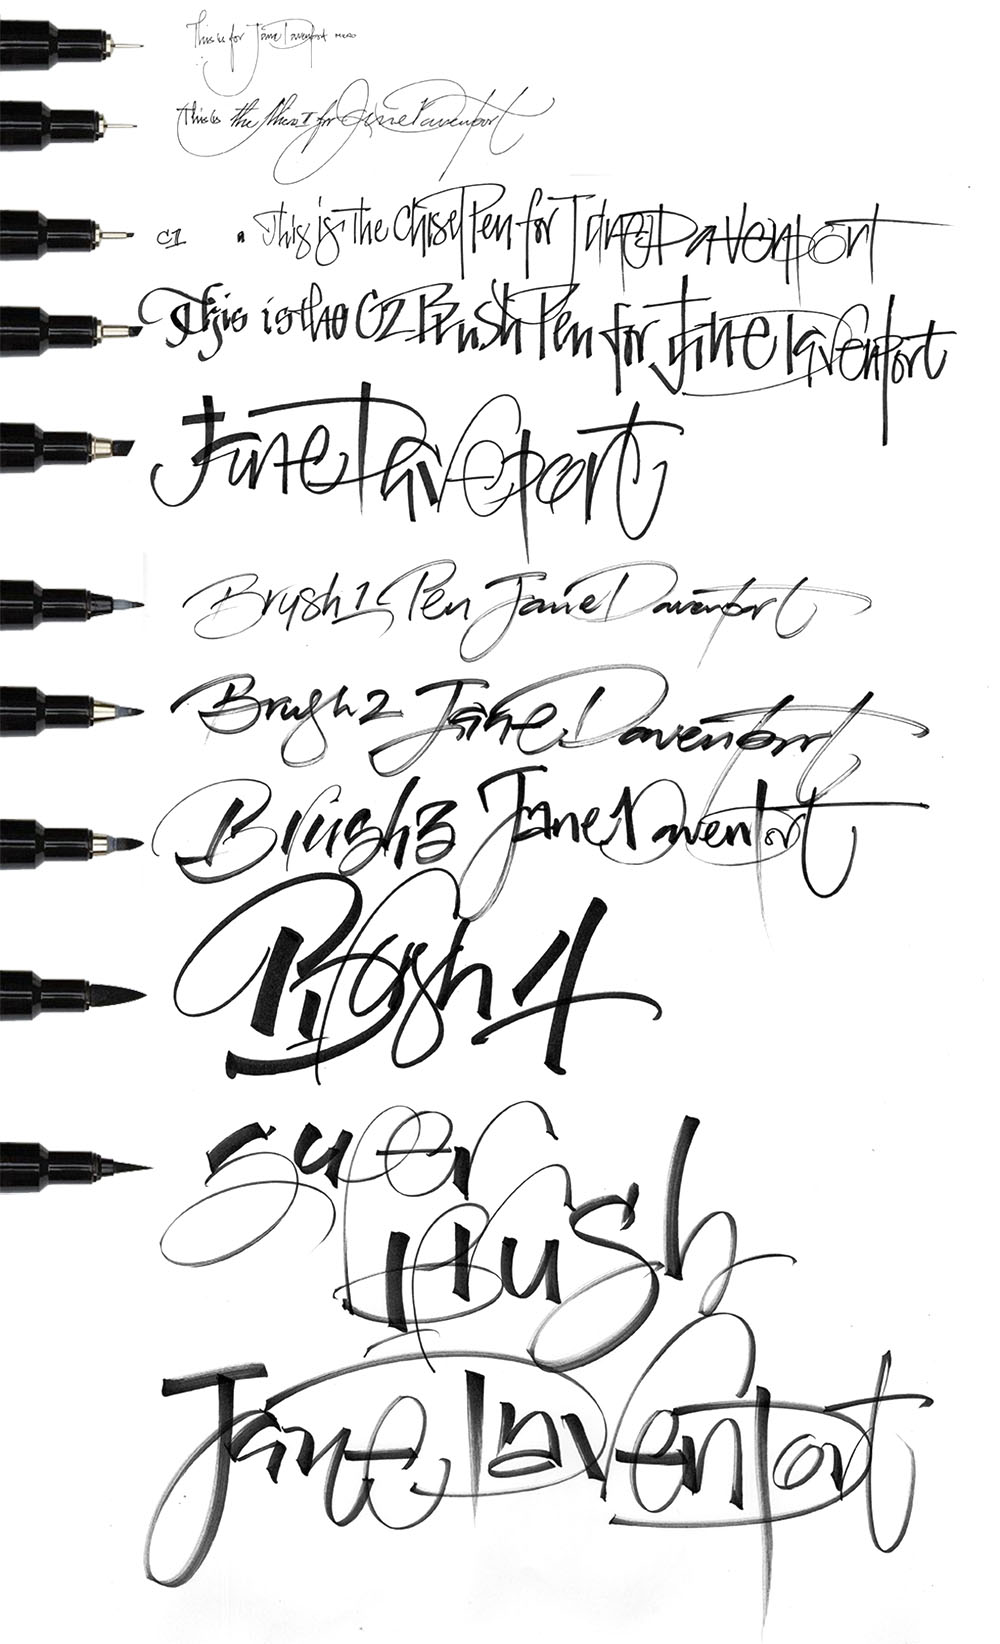 This is for Jane Davenport MICRO
This is the Micro I for Jane Davenport
C1 This is the Chisel Pen for Jane Davenport
This is the C2 Brush Pen for Jane Davenport
Jane Daveport
Brush 1 Pen Jane Davenport
Brush 2 Jane Davenport
Brush 3 Jane Davenport
Brush 4
Super
Brush
Jane Davenport